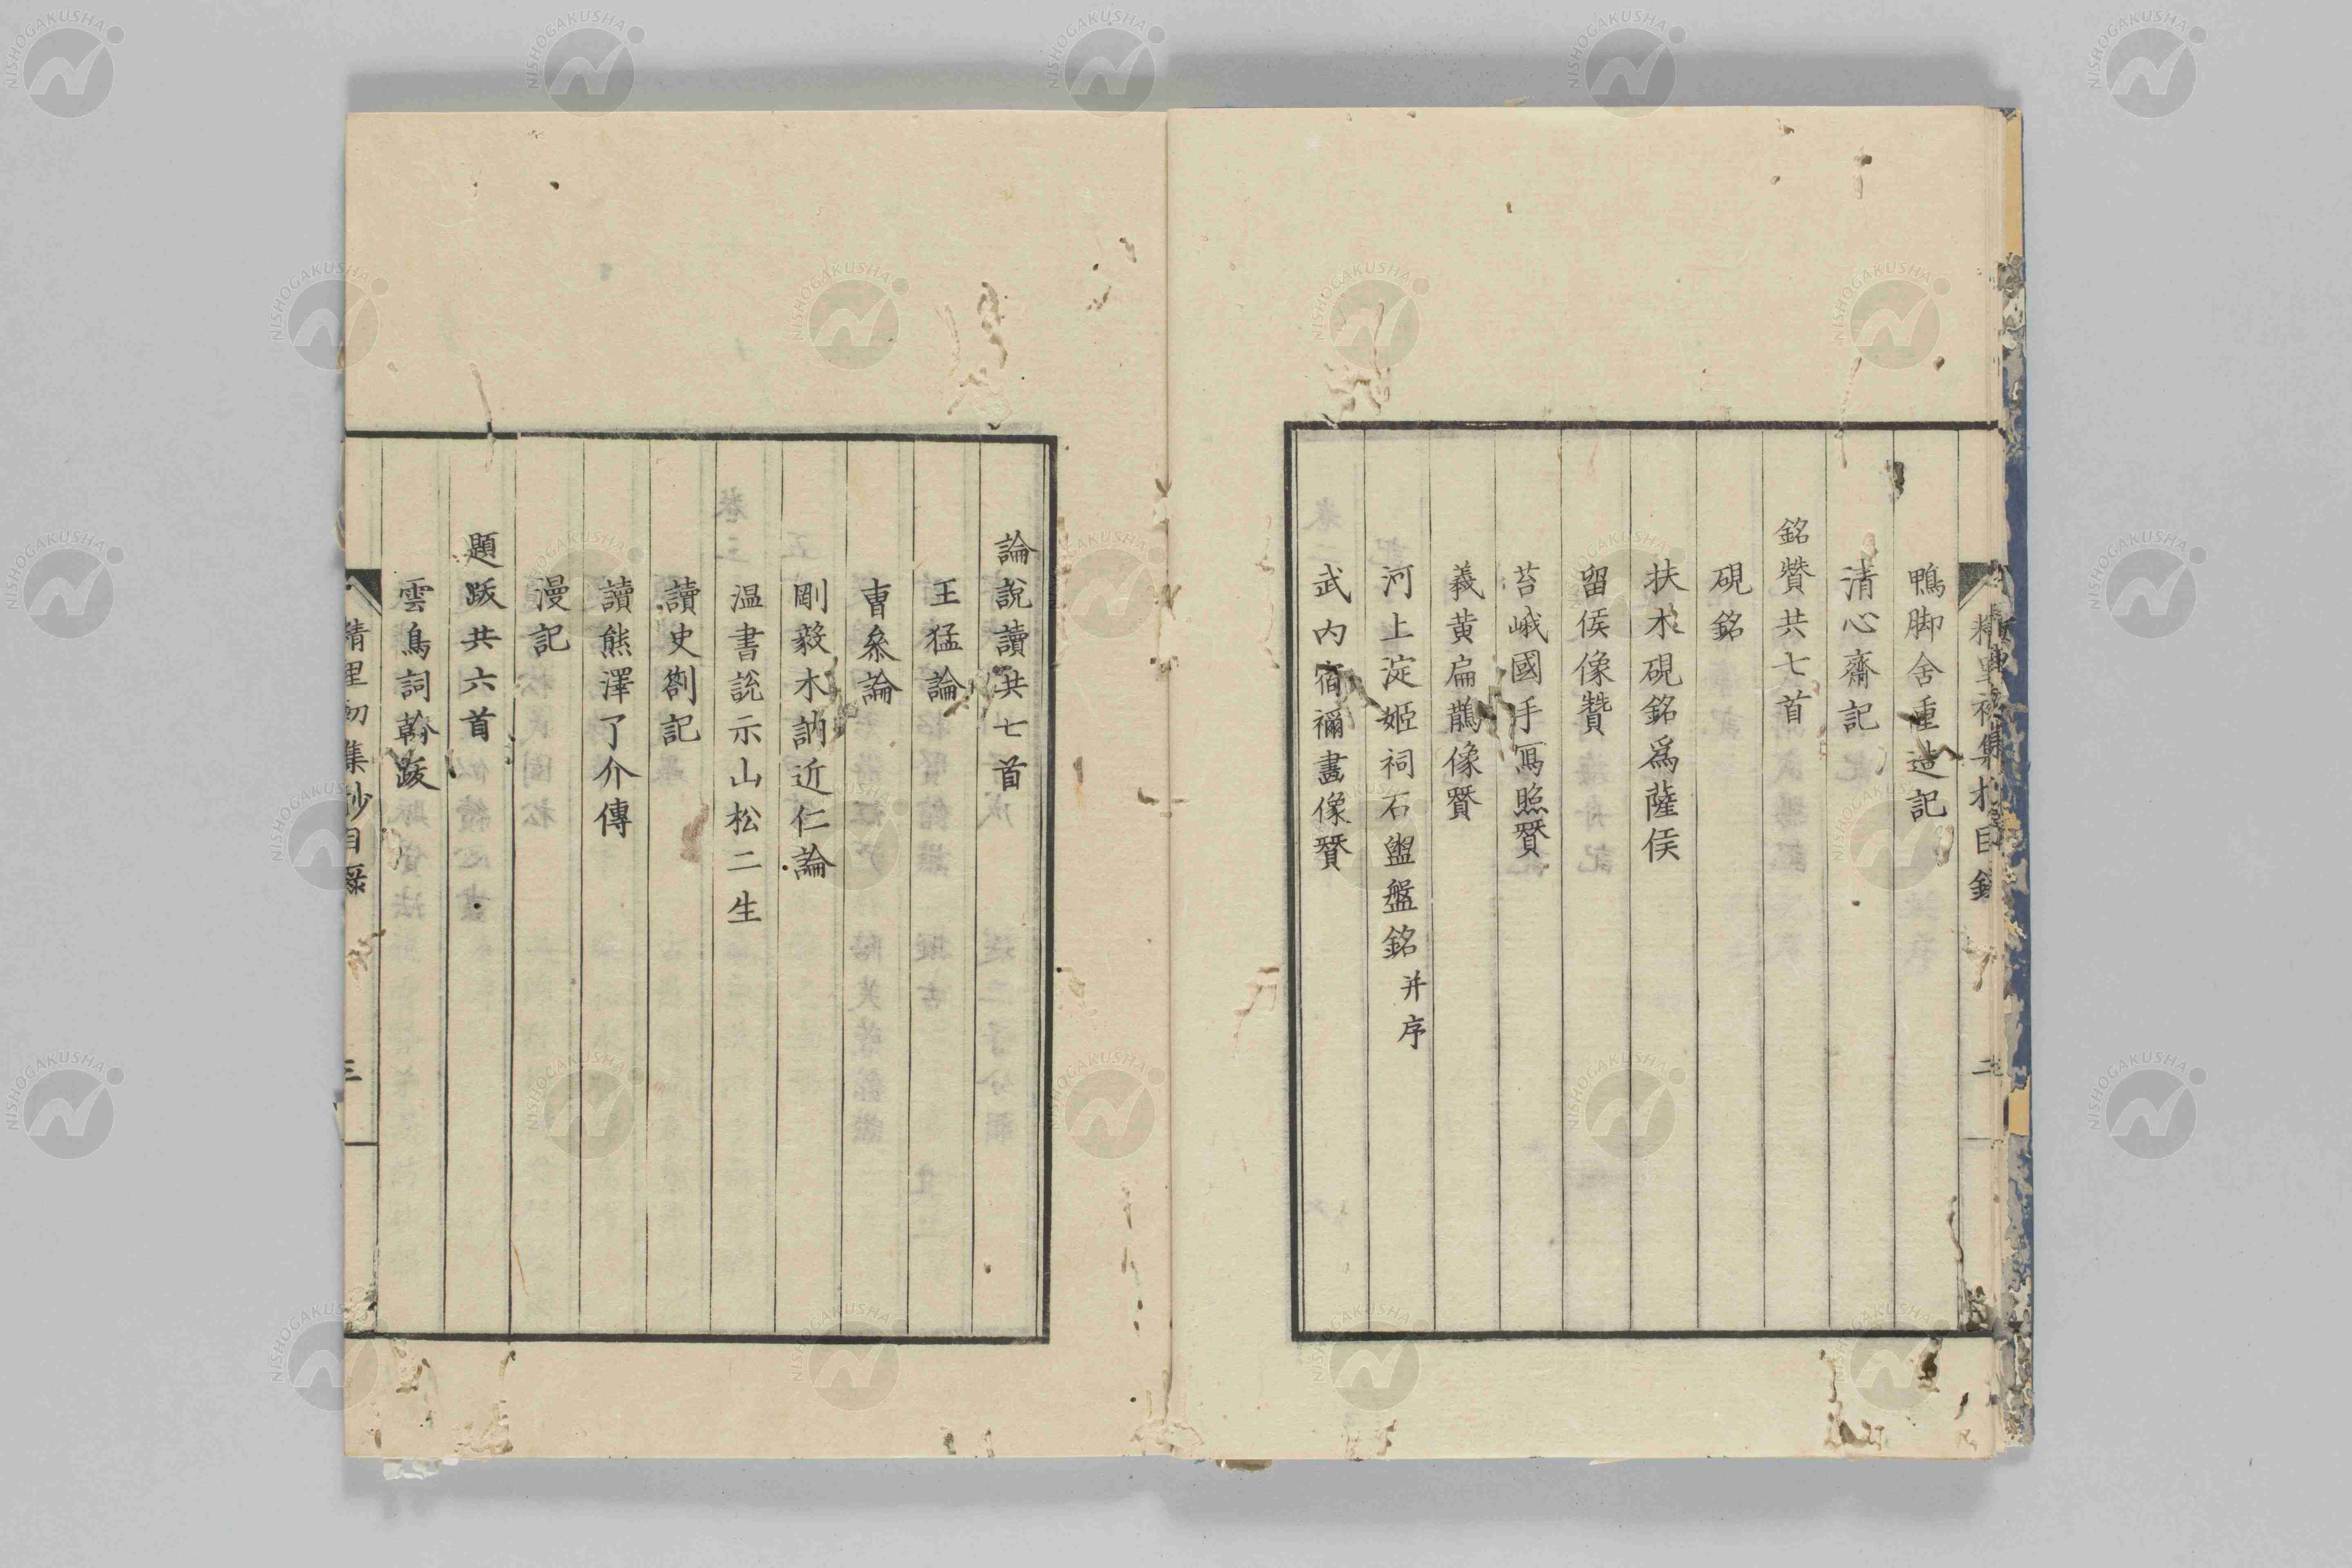 鴨脚舍重造記
清心齋記
銘贊共七首
硯銘
扶木硯銘爲薩侯
留侯像贊
苔峨國手寫照贊
義黄扁鵲像贊
河上淀姬祠石盥盤銘并序
武内宿禰畫像贊
精里初集抄目録 二
論說讀共七首
王猛論
曹參論
剛毅木訥近仁論
温書說示山松二生
讀史劄記
讀熊澤了介傳
漫記
題跋共六首
雲鳥詞翰跋
精里初集抄目録 三
NISHOGAKUSHA